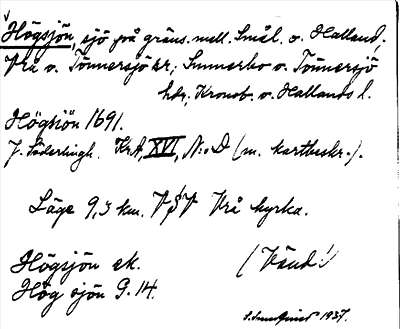 Högsjön, sjö på gräns. mell. Smål. o. Halland,
Vrå o. Tönnersjö sr; Sunnerbo o. Tönnersjö
hdr, Kronob. o. Hallands l.
Högsiön 1691.
J. Söderlingh. KrA, XVI, N:o D (m. kartbeskr.).
Läge 9,5 km. VSV Vrå kyrka.
Högsjön ek. (Vänd!)
Hög sjön G. 14.
1937.